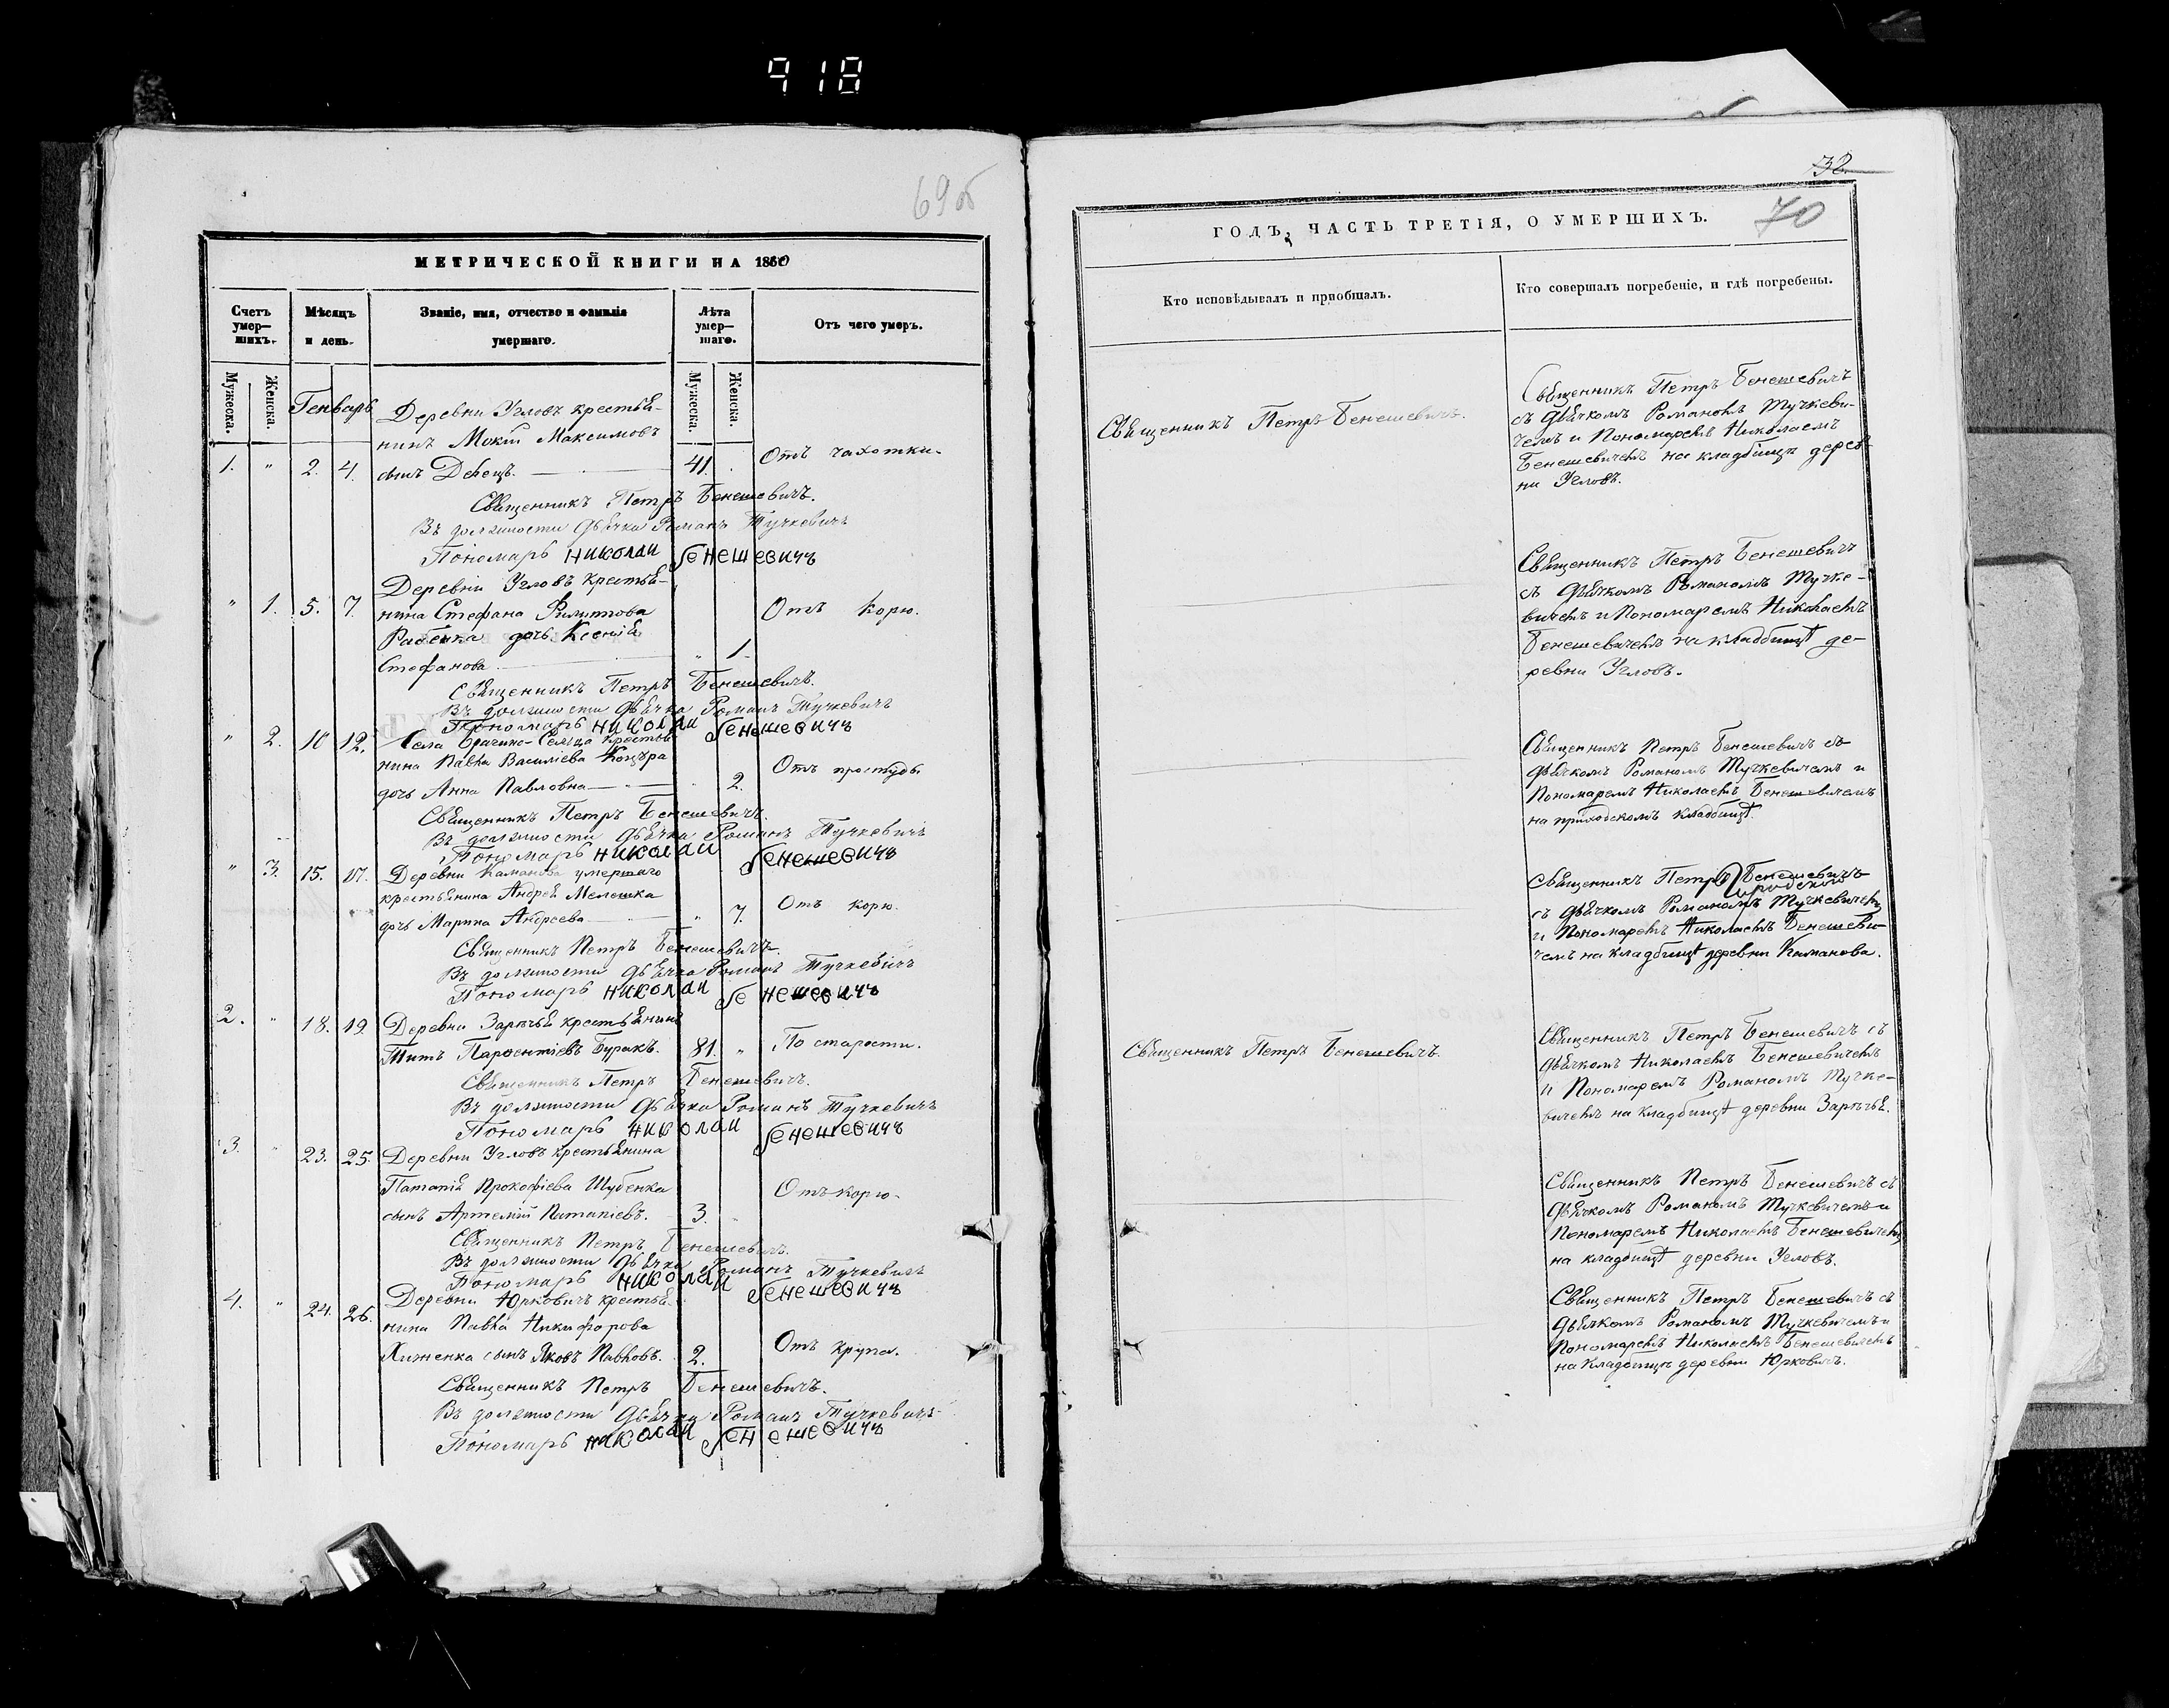 918
69 об
МЕТРИЧЕСКОЙ КНИГИ НА 1860
Счетъ умер—шихъ.
Мѣсяцъ и день.
Званіе, имя, отчество и фамилія умершаго.
Лѣта умер—шаго.
Отъ чего умеръ.
Мужеска.
Женска.
Мужеска.
Женска.
Генварь
Деревни Угловъ крестья-
нинъ Мокій Максимовъ
1. " 2. 4. сынъ 41. Отъ чахотки.
Священникъ Петръ Бенешевичъ.
Въ должности дьячка Романъ Тучкевичъ
Пономарь Николаи Бенешевичъ
Деревни Угловъ крестья-
" 1. 5. 7. нина Стефана Филиппова Отъ корю.
дочь Ксенія
Стефанова " 1.
Священникъ Петръ Бенешевичъ.
Въ должности дьячка Романъ Тучкевичъ
Пономарь Николаи Бенешевичъ
" 2. 10 12. Села крестья-
нина Павла Василіева Отъ простуды
дочь Анна Павловна " 2.
Священникъ Петръ Бенешевичъ.
Въ должности дьячка Романъ Тучкевичъ
Пономарь Николаи Бенешевичъ
" 3. 15. 17. Деревни Каманова умершаго
крестьянина Андрея Мелешка Отъ корю.
дочь Марина Андреева " 7.
Священникъ Петръ Бенешевичъ.
Въ должности дьячка Романъ Тучкевичъ
Пономарь Николаи Бенешевичъ
2. " 18. 19 Деревни Зарѣчья крестьянинъ
Титъ Парфентіевъ Буракъ. 81. " По старости.
Священникъ Петръ Бенешевичъ.
Въ должности дьячка Романъ Тучкевичъ
Пономарь Николаи Бенешевичъ
3. " 23. 25. Деревни Угловъ крестьянина
Патапія Прокофіева Шубенка Отъ корю.
сынъ Артемій Патапіевъ. 3. "
Священникъ Петръ Бенешевичъ.
Въ должности дьячка Романъ Тучкевичъ
Пономарь Николаи Бенешевичъ
4. " 24. 26. Деревни Юрковичъ крестья-
нина Павла Никифорова
сынъ Яковъ Павловъ. 2. Отъ крупа.
Священникъ Петръ Бенешевичъ.
Въ должности дьячка Романъ Тучкевичъ
Пономарь Николаи Бенешевичъ
32
70
ГОДЪ, ЧАСТЬ ТРЕТІЯ, О УМЕРШИХЪ.
Кто исповѣдывалъ и пріобщалъ.
Кто совершалъ погребеніе, и гдѣ погребены.
Священникъ Петръ Бенешевичъ.
Священникъ Петръ Бенешевичъ
съ дьячкомъ Романомъ Тучкеви-
чемъ и Пономаремъ Николаемъ
Бенешевичемъ на кладбищѣ дерев-
ни Угловъ.
Священникъ Петръ Бенешевичъ
съ дьячкомъ Романомъ Тучке-
вичемъ и Пономаремъ Николаемъ
Бенешевичемъ на кладбищѣ де-
ревни Угловъ.
Священникъ Петръ Бенешевичъ съ
дьячкомъ Романомъ Тучкевичемъ и
Пономаремъ Николаемъ Бенешевичемъ
на приходскомъ кладбищѣ.
Священникъ Петръ Бенешевичъ
съ дьячкомъ Романомъ Тучкевичемъ
и Пономаремъ Николаемъ Бенешеви-
чемъ на кладбищѣ деревни Каманова.
Священникъ Петръ Бенешевичъ.
Священникъ Петръ Бенешевичъ съ
дьячкомъ Николаемъ Бенешевичемъ
и Пономаремъ Романомъ Тучке-
вичемъ на кладбищѣ деревни Зарѣчья.
Священникъ Петръ Бенешевичъ съ
дьячкомъ Романомъ Тучкевичемъ и
Пономаремъ Николаемъ Бенешевичемъ
на кладбищѣ деревни Угловъ.
Священникъ Петръ Бенешевичъ съ
дьячкомъ Романомъ Тучкевичемъ и
Пономаремъ Николаемъ Бенешевичемъ
на кладбищѣ деревни Юрковичъ.